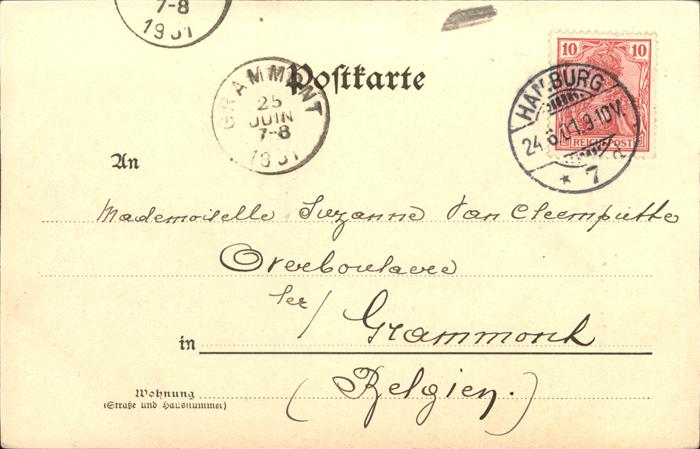 7-8
1901
10 10
REICHSPOST
HAMBURG
24.6.01.9-10V.
* 7 d
GRAMMONT
25
JUIN
7-8
1901
Postkarte
An
Mademoiselle Suzanne Van Cleemputte
Overboulaere
lez/ Grammont
in
(Belgien.)
Wohnung
(Straße und Hausnummer)